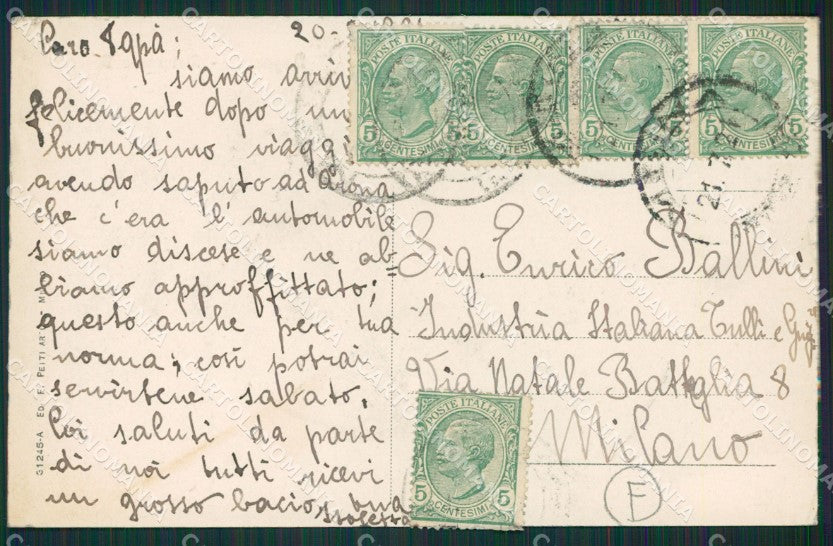 20
Caro
siamo arriv
felicemente dopo un
buonissimo viaggi
avendo saputo ad Arona
che c'era l'automobile
siamo discese e ne ab=
biamo approffittato;
questo anche per tua
norma; così potrai
servirtene sabato.
Poi saluti da parte
di noi tutti ricevi
un grosso bacio, tua
Sig. Enrico Ballini
Industria Italiana Tulli e
Via Natale Battaglia 8
Milano
F
POSTE ITALIANE
5 CENTESIMI 5
POSTE ITALIANE
5 CENTESIMI 5
POSTE ITALIANE
5 CENTESIMI
POSTE ITALIANE
5 CENTESIMI 5
POSTE ITALIANE
5 CENTESIMI 5
21.
G1245-A ED. F. PEITI
CARTOLINOMANIA